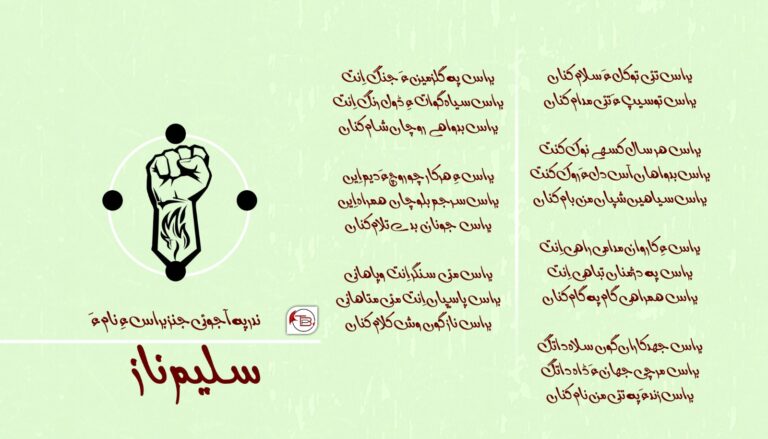 یراس تئی توکل ءَ سلام کناں
یراس توسیپ ءَ تئی مدام کناں
یراس ھر سال کسھے نوک کنت
یراس بدواھاں آس دل ءَ روک کنت
یراس سیاھیں شپاں من بام کناں
یراس ءِ کارواں مدامی راھی اِنت
یراس پہ دژمناں تباھی اِنت
یراس ھمراھی گام پہ گام کناں
یراس جھدکاراں گوں سلاہ داتگ
یراس مرچی جھان ءَ ڈاہ داتگ
یراس زندءَ پہ تئی من نام کناں
یراس پہ گلزمین ءَ جنگ اِنت
یراس سیاہ گوات ءِ ڈول رنگ اِنت
یراس بدواھے روچاں شام کناں
یراس ءِ ھر کار چو روچ ءَ دیم اِیں
یراس سرجم بلوچاں ھمراہ اِیں
یراس جوناں بدے تلام کناں
یراس منی سنگر اِنت و پاھانی
یراس پاسپان اِنت منی متاھانی
یراس ناز گوں وش کلام کناں
ندر پہ آجوئی جنز یراس ءِ نام ءَ
سلیم ناز